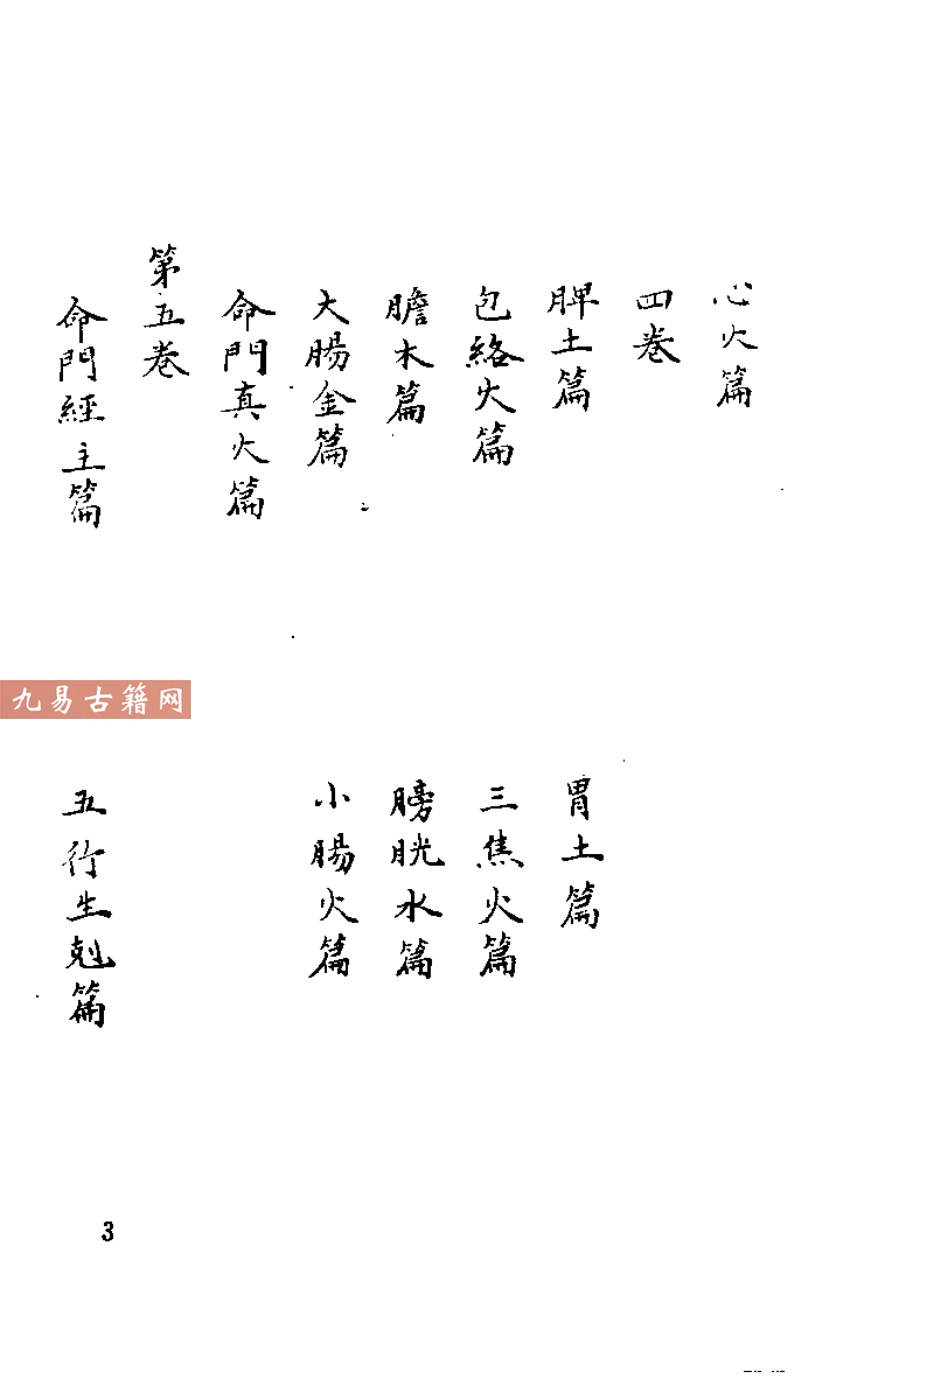 心火篇
四卷
脾土篇
胃土篇
包絡火篇
三焦火篇
膽木篇
膀胱水篇
大腸金篇
小腸火篇
命門真火篇
第五卷
命門經主篇
五行生剋篇
九易古籍网
3